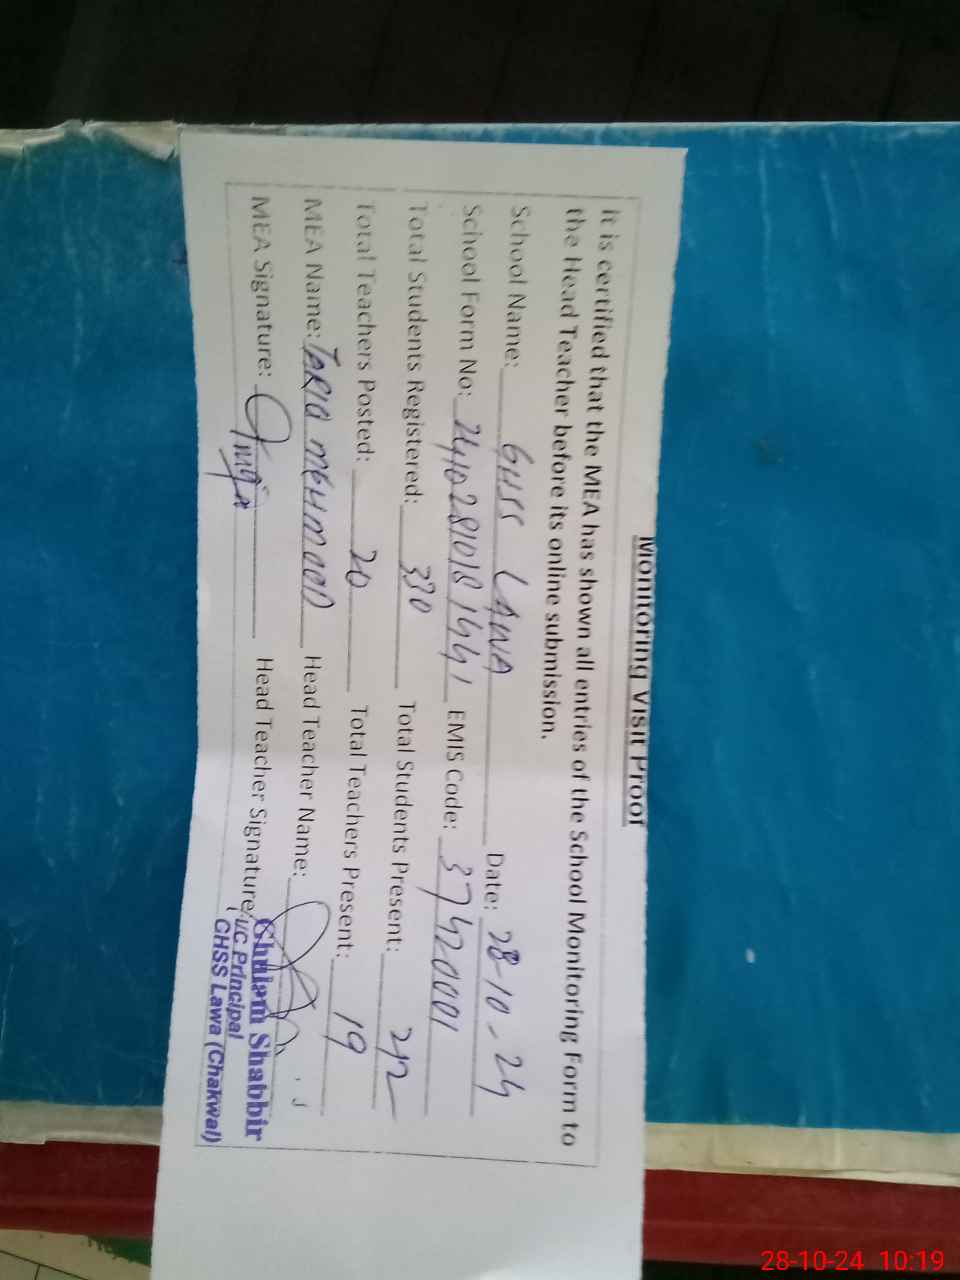 Monitoring Visit Proof
It is certified that the MEA has shown all entries of the School Monitoring Form to
the Head Teacher before its online submission.
School Name: GHSS LAWA Date: 28-10-24
School Form No: EMIS Code: 37420001
Total Students Registered: 330 Total Students Present: 242
Total Teachers Posted: 20 Total Teachers Present: 19
MEA Name: TARIQ MEHMOOD Head Teacher Name:
MEA Signature: Head Teacher Signature:
Ghulam Shabbir
I/C Principal
GHSS Lawa (Chakwal)
28-10-24 10:19